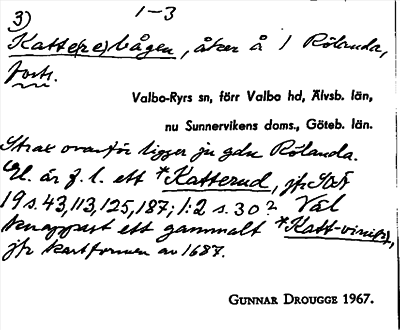 3) 1-3
Katte(re)bågen, åker å 1 Rölanda,
forts.
Valbo-Ryrs sn, förr Valbo hd, Älvsb. län,
nu Sunnervikens doms., Göteb. län.
Strax ovanför ligger ju gdn Rölanda.
El. är f. l. ett *Katterud, jfr SOÄ
19 s. 43, 113, 125, 187; 1:2 s. 30? Väl
knappast ett gammalt *Katt-
jfr kartformen av 1687.
GUNNAR DROUGGE 1967.